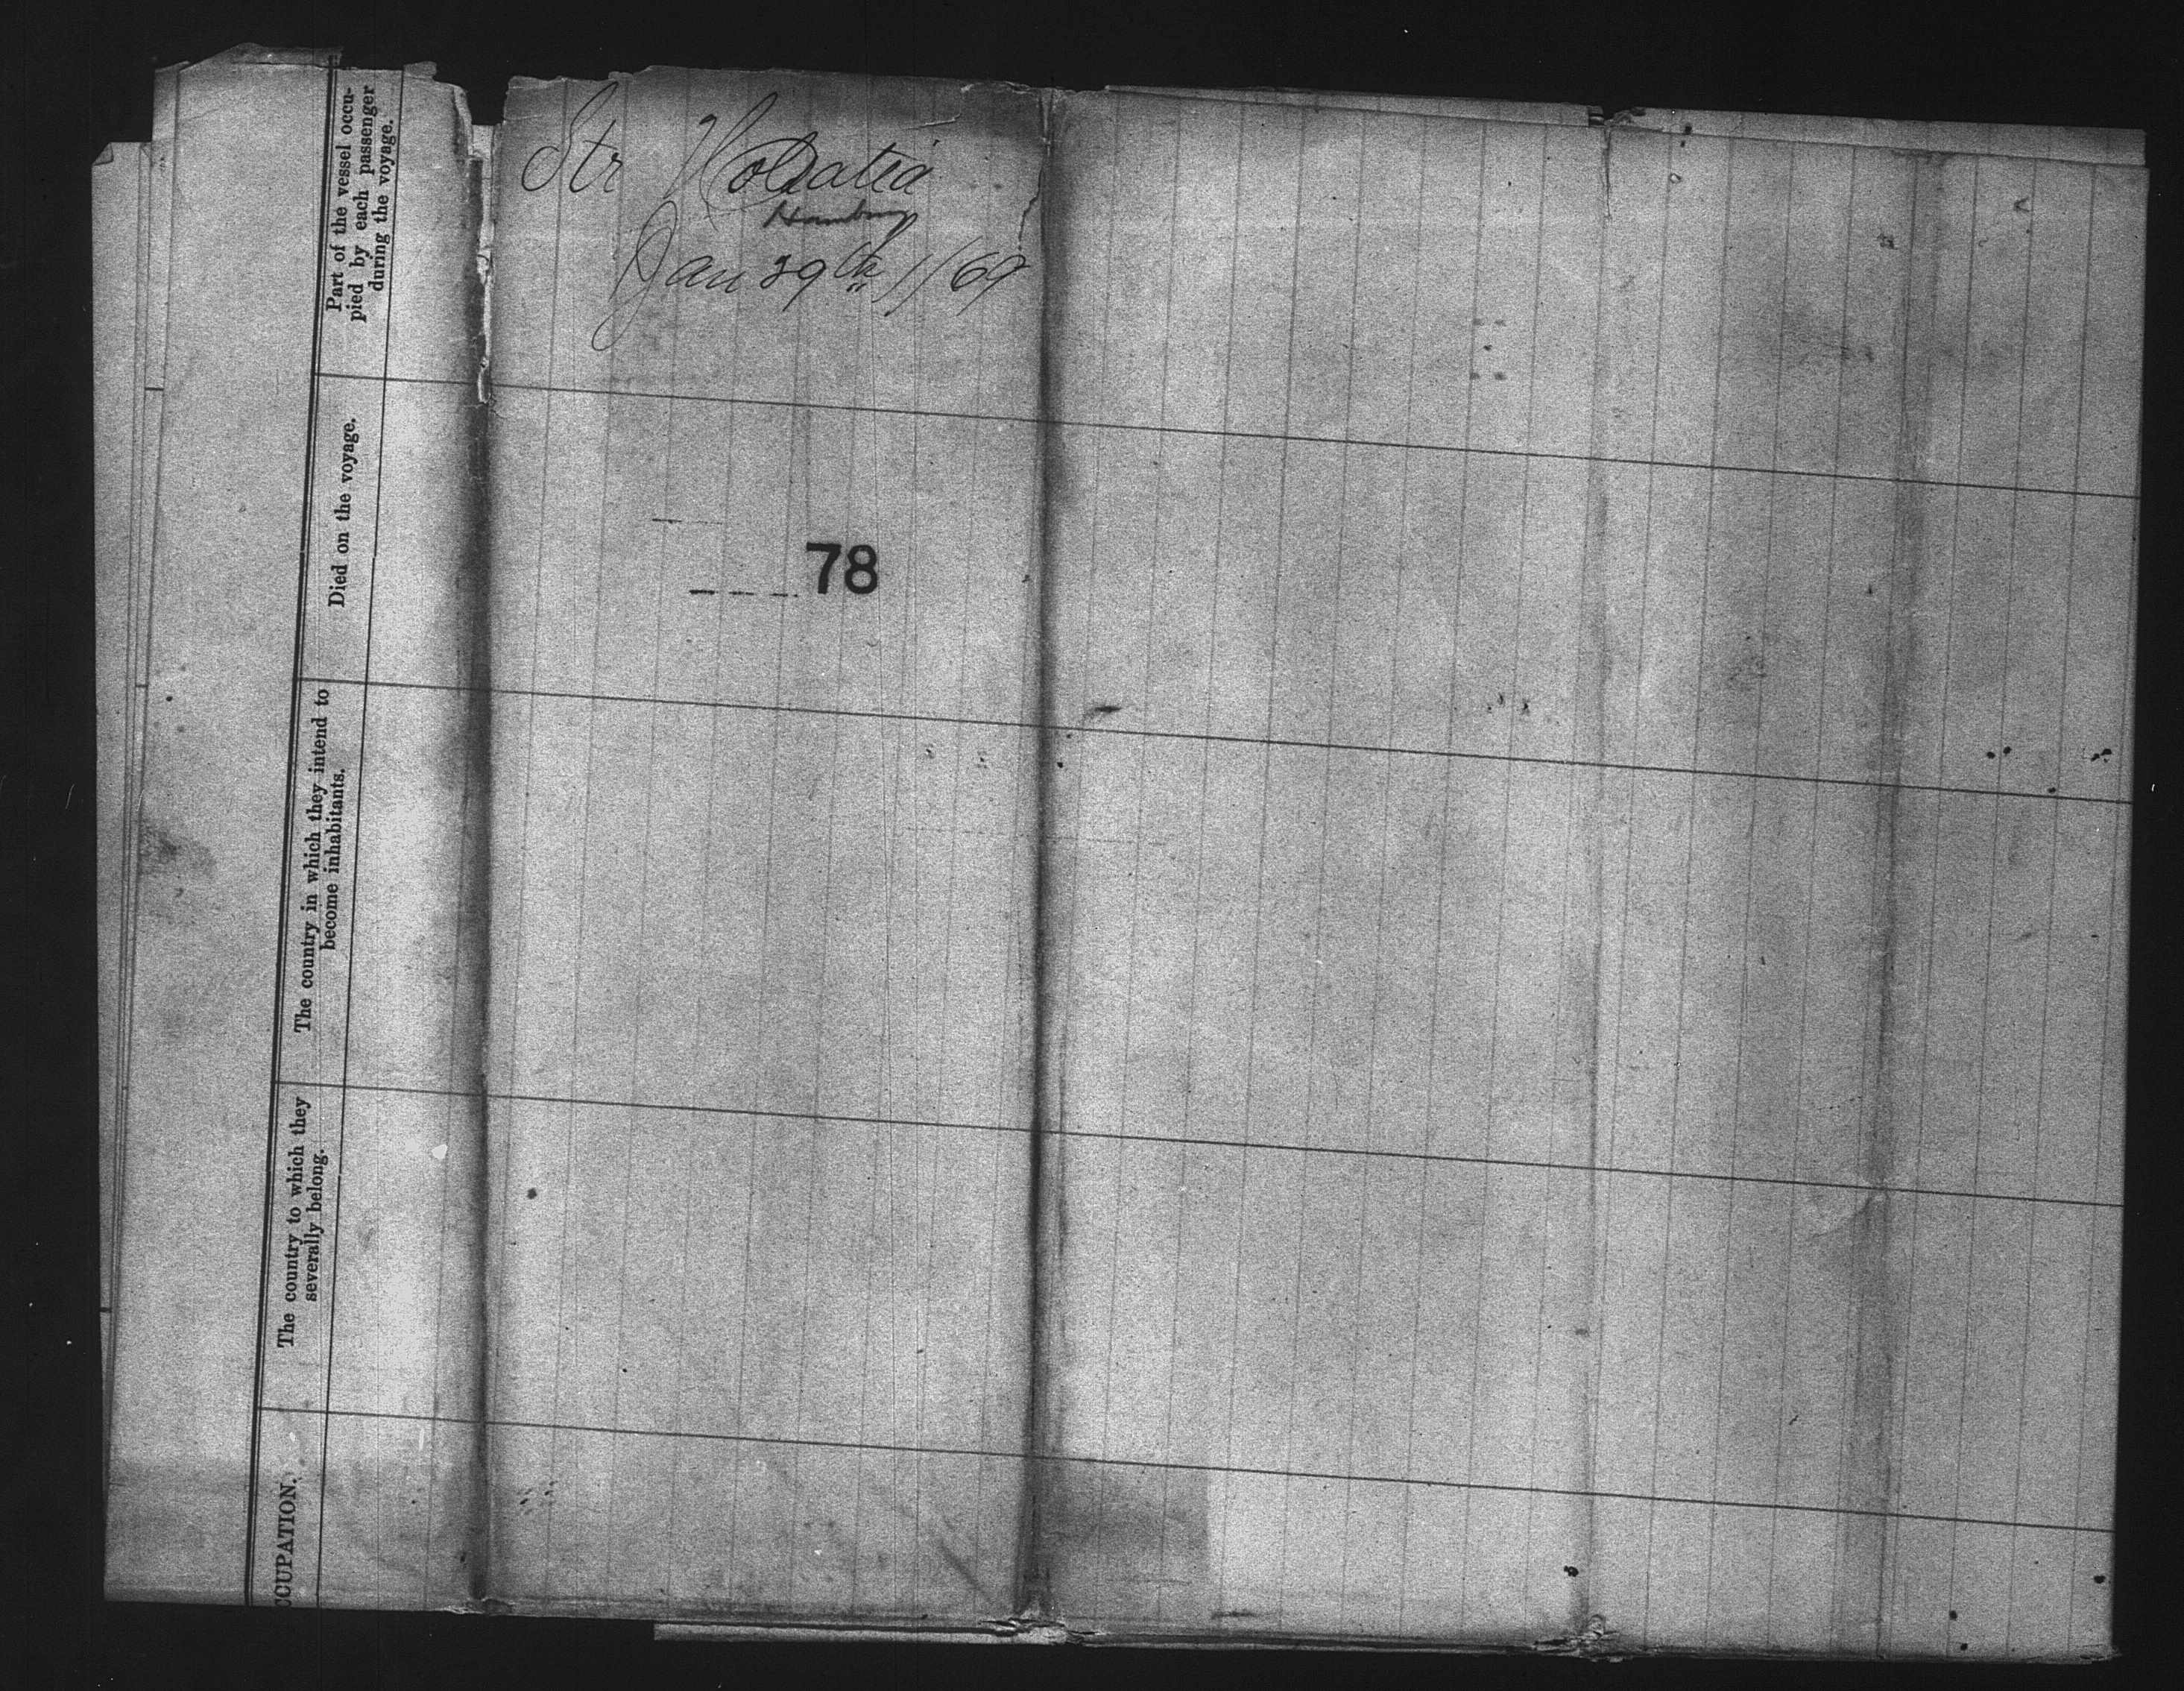 Str Holsatia
Hamburg
Jan 29th //69
78
Part of the vessel occu-
pied by each passenger
during the voyage.
Died on the voyage.
The country in which they intend to
become inhabitants.
The country to which they
severally belong.
CCUPATION.